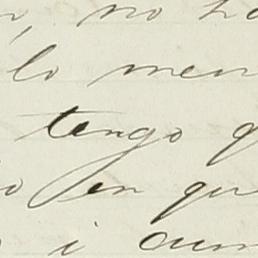 , no ha
lo men
tengo q
o en qu
i aun